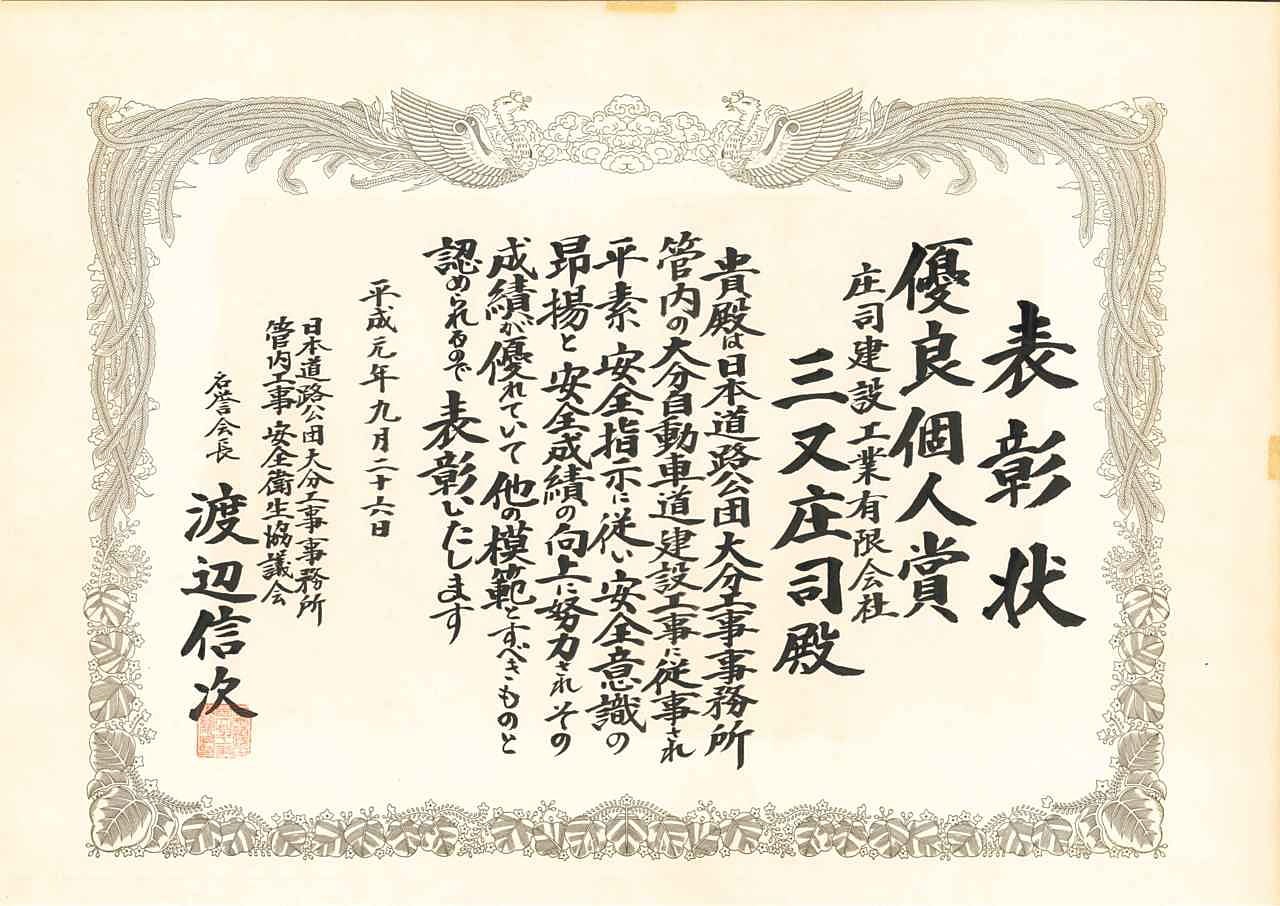 表彰状
優良個人賞
庄司建設工業有限会社
三又庄司殿
貴殿は日本道路公団大分工事事務所
管内の大分自動車道建設工事に従事され
平素安全指示に従い安全意識の
昂揚と安全成績の向上に努力されその
成績が優れていて他の模範とすべきものと
認められるので表彰いたします
平成元年九月二十六日
日本道路公団大分工事事務所
管内工事安全衛生協議会
名誉会長
渡辺信次